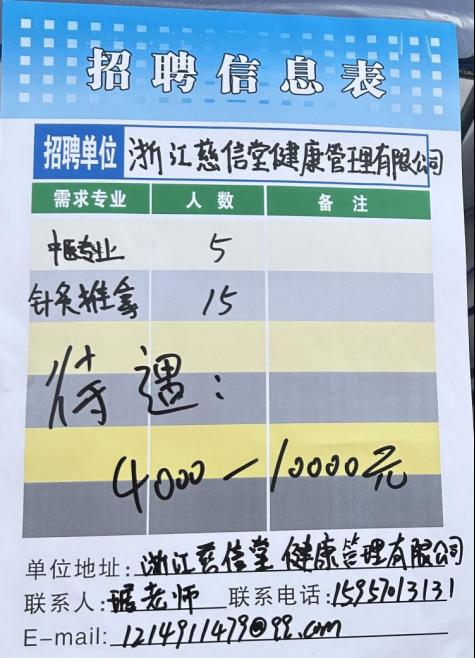 招聘信息表
招聘单位 浙江慈信堂健康管理有限公司
需求专业 人数 备注
中医专业 5
针灸推拿 15
待遇：
4000－10000元
单位地址：浙江慈信堂健康管理有限公司
联系人：琚老师 联系电话：15957013131
E-mail：1214911479@qq.com